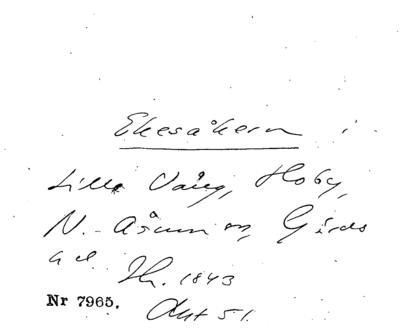 Ekesåkern i
Lilla Vång, Hoby,
N. Åsum sn, Gärds
hd. Th. 1843
Nr 7965. Akt 51.